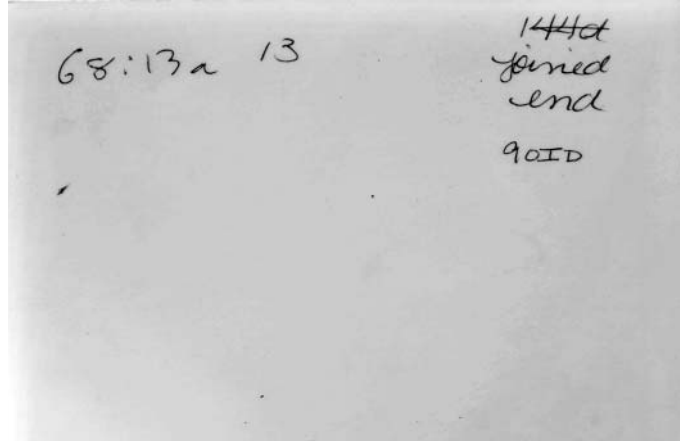 68:13a 13
144d
joined
end
90ID